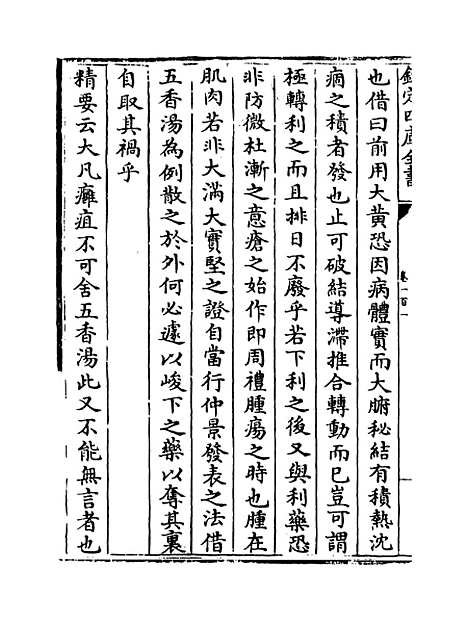 欽定四庫全書
卷一百一
也借曰前用大黃恐因病體實而大腑秘結有積熱沈
痼之積者發也止可破結導滯推合轉動而已豈可謂
極轉利之而且排日不廢乎若下利之後又與利藥恐
非防微杜漸之意瘡之始作即周禮腫瘍之時也腫在
肌肉若非大滿大實堅之證自當行仲景發表之法借
五香湯為例散之於外何必遽以峻下之藥以奪其裏
自取其禍乎
精要云大凡癰疽不可舍五香湯此又不能無言者也